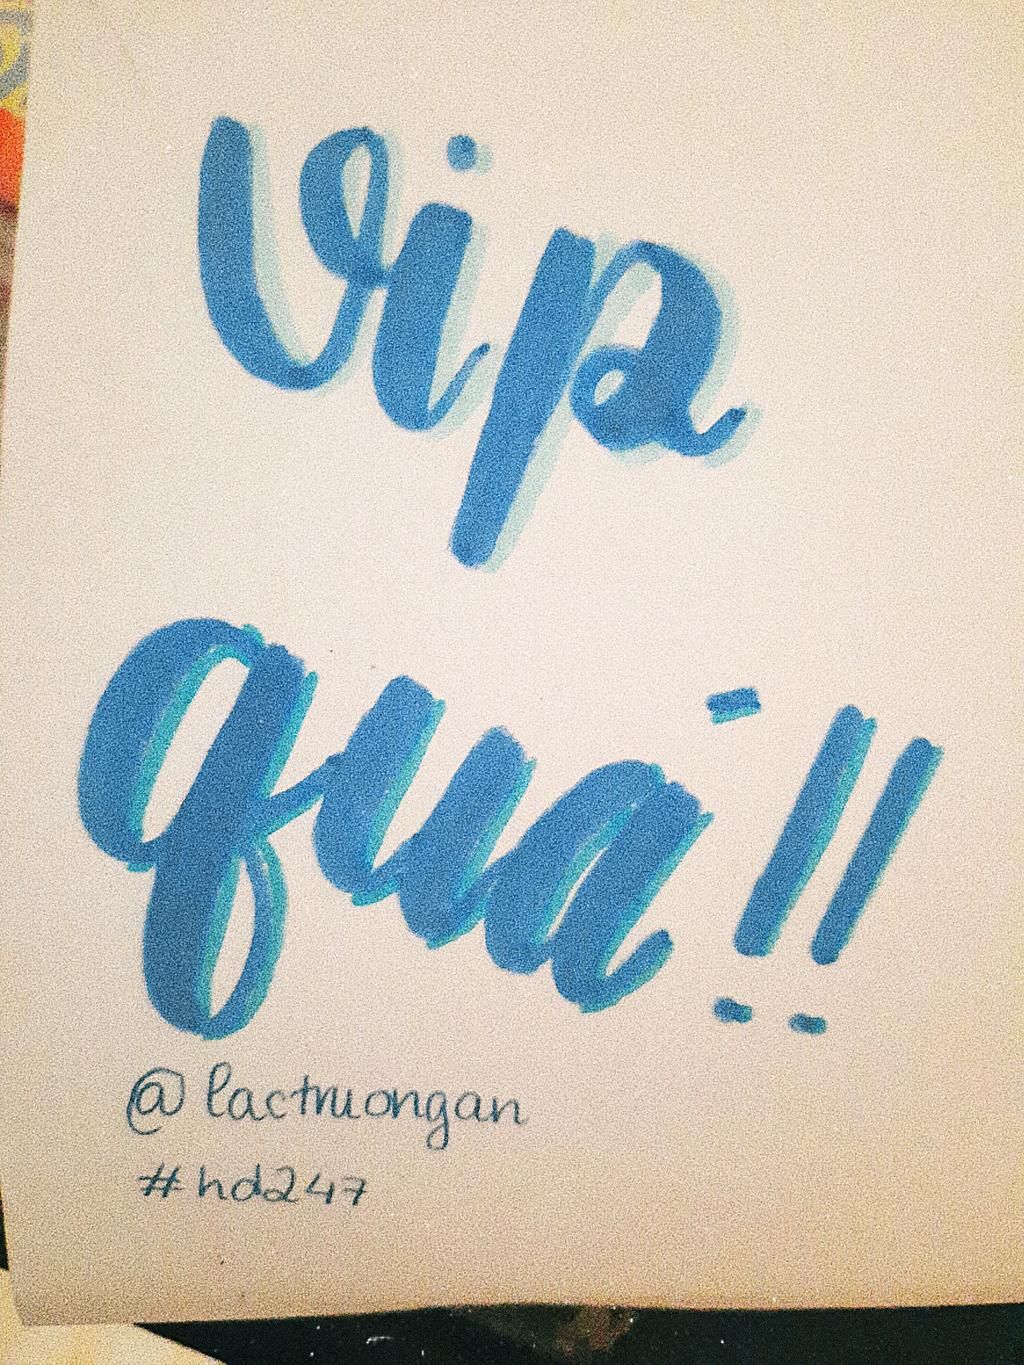 vip
quá!!
@lactruongan
#hd247